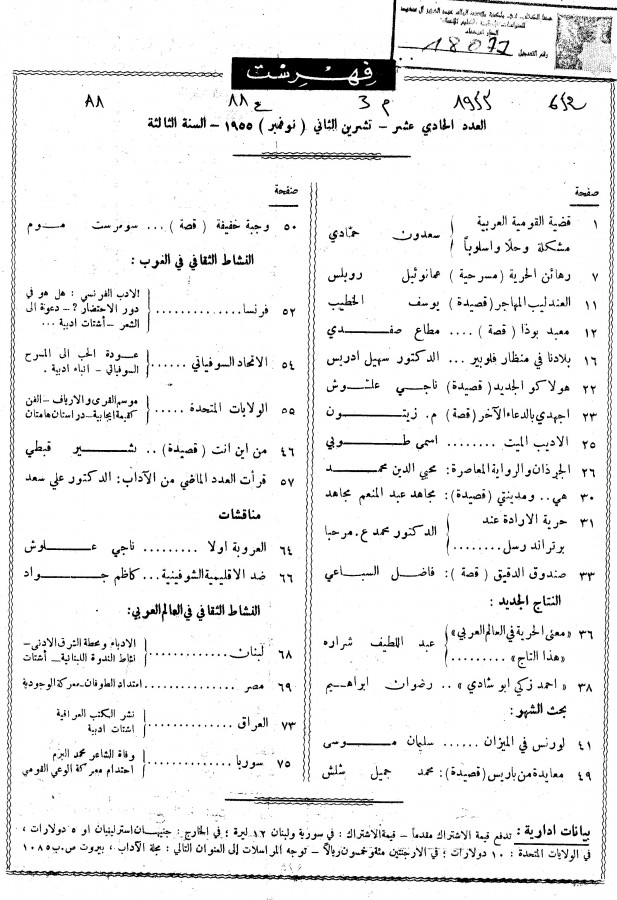 رقم التسجيل
18071
فهرست
م 3
ع 88
88
العدد الحادي عشر – تشرين الثاني ( نوفمبر ) ١٩٥٥ – السنة الثالثة
صفحة
١ قضية القومية العربية
مشكلة وحلا واسلوباً
سعدون حمادي
٧ رهائن الحرية ( مسرحية ) عمانوئيل روبلس
١١ العندليب المهاجر (قصيدة) يوسف الخطيب
١٢ معبد بوذا ( قصة ) .... مطاع صفدي
١٦ بلادنا في منظار فلوبير ... الدكتور سهيل ادريس
٢٢ هولاكو الجديد ( قصيدة ) ناجي علوش
٢٣ اجهدي بالدعاء الآخر (قصة) م. زيتون
٢٥ الاديب الميت ........ اسمى طوبي
٢٦ الجرذان والرواية المعاصرة: محيي الدين محمد
٣٠ هي.. ومدينتي (قصيدة): مجاهد عبد المنعم مجاهد
٣١ حرية الارادة عند
برتراند رسل........
الدكتور محمد ع. مرحبا
٣٣ صندوق الدقيق ( قصة ): فاضل السباعي
النتاج الجديد :
٣٦ «معنى الحرية في العالم العربي»
«هذا التاج» .........
عبد اللطيف شراره
٣٨ « احمد زكي ابو شادي » .. رضوان ابراهيم
بحث الشهر:
٤١ لورنس في الميزان ...... سليمان موسى
٤٩ معايدة من باريس (قصيدة): محمد جميل شلش
صفحة
٥٠ وجبة خفيفة ( قصة ) ... سومرست موم
النشاط الثقافي في الغرب :
٥٢ فرنسا............
الادب الفرنسي : هل هو في
دور الاحتضار ? – دعوة الى
الشعر – أشتات ادبية ...
٥٤ الاتحاد السوفياتي ......
عودة الحب الى المسرح
السوفياتي – انباء ادبية .
٥٥ الولايات المتحدة ......
موسم القرى والارياف – الفن
كقيمة ايجابية – دراستان هامتان
٤٦ من اين انت ( قصيدة ) .. بشير قبطي
٥٧ قرأت العدد الماضي من الآداب: الدكتور علي سعد
مناقشات
٦٤ العروبة اولا ......... ناجي علوش
٦٦ ضد الاقليمية الشوفينية ... كاظم جواد
النشاط الثقافي في العالم العربي:
٦٨ لبنان............
الادباء ومحطة الشرق الادنى –
نشاط الندوة اللبنانية – أشتات
٦٩ مصر ............ امتداد الطوفان – معركة الوجودية
٧٣ العراق ............
نشر الكتب العراقية
اشتات ادبية
٧٥ سوريا............
وفاة الشاعر محمد البزم
احتدام معركة الوعي القومي
بيانات ادارية : تدفع قيمة الاشتراك مقدماً – قيمة الاشتراك : في سورية ولبنان ١٢ ليرة ؛ في الخارج : جنيهان استرلينيان او ٥ دولارات ،
في الولايات المتحدة : ١٠ دولارات ؛ في الارجنتين مئة وخمسون ريالاً – توجه المراسلات الى العنوان التالي : مجلة الآداب ، بيروت ص.ب ١٠٨٥